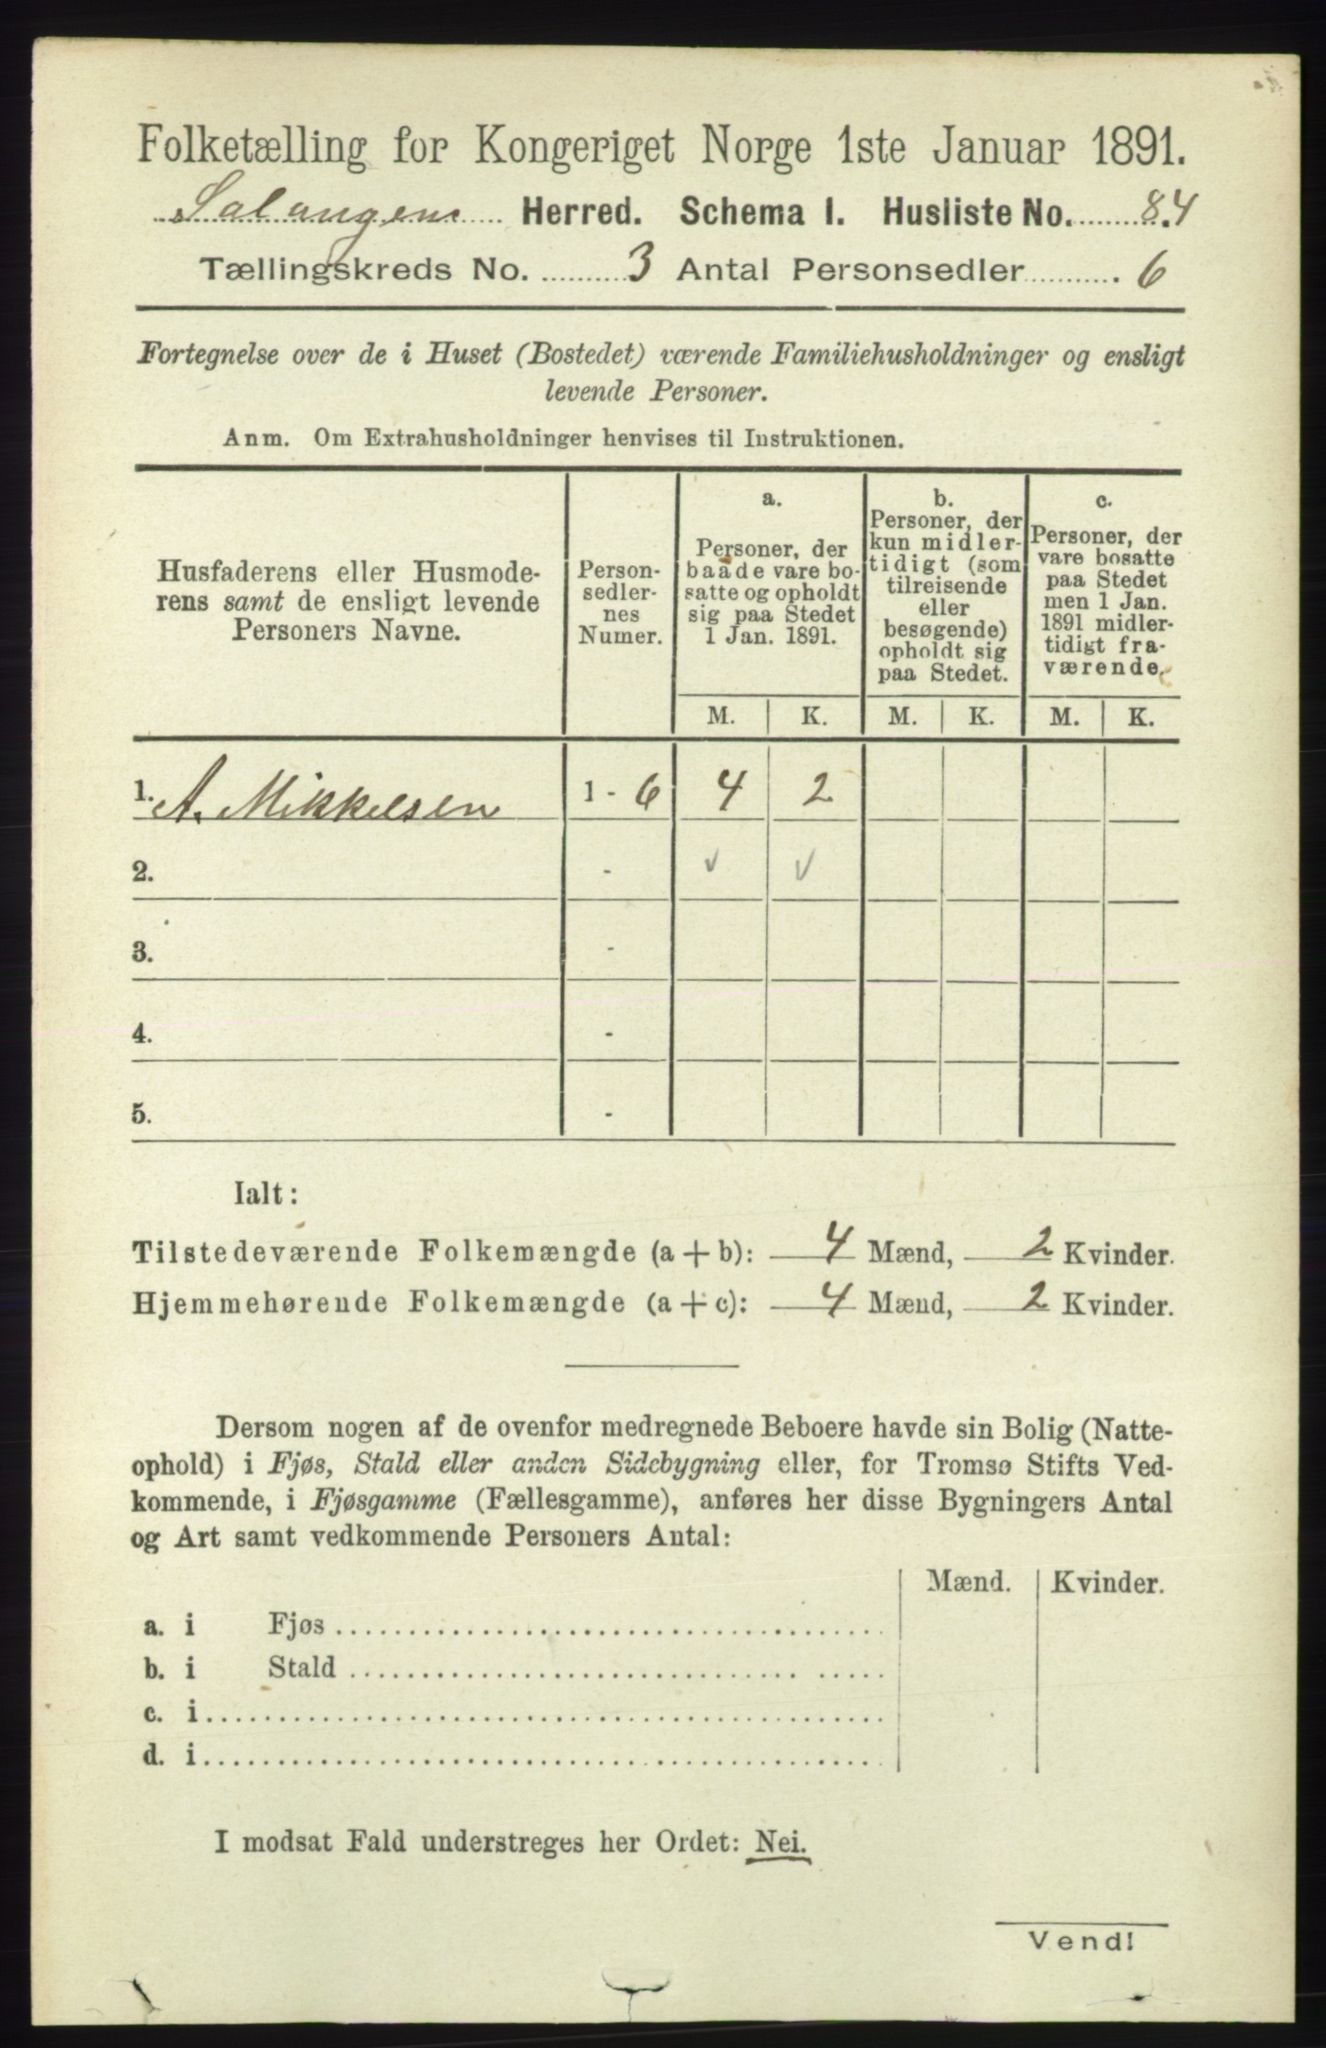 Folketælling for Kongeriget Norge 1ste Januar 1891.
Salangen Herred. Schema I. Husliste No. 84
Tællingskreds No. 3 Antal Personsedler 6
Fortegnelse over de i Huset (Bostedet) værende Familiehusholdninger og ensligt
levende Personer.
Anm. Om Extrahusholdninger henvises til Instruktionen.
Husfaderens eller Husmode-
rens samt de ensligt levende
Personers Navne.
Person-
sedler-
nes
Numer.
a.
Personer, der
baade vare bo-
satte og opholdt
sig paa Stedet
1 Jan. 1891.
b.
Personer, der
kun midler-
tidigt (som
tilreisende
eller
besøgende)
opholdt sig
paa Stedet.
c.
Personer, der
vare bosatte
paa Stedet
men 1 Jan.
1891 midler-
tidigt fra-
værende.
M. K. M. K. M. K.
1. A. Mikkelsen 1 - 6 4 2
2. - ✓ ✓
3. -
4. -
5. -
Ialt:
Tilstedeværende Folkemængde (a + b): 4 Mænd, 2 Kvinder.
Hjemmehørende Folkemængde (a + c): 4 Mænd, 2 Kvinder.
Dersom nogen af de ovenfor medregnede Beboere havde sin Bolig (Natte-
ophold) i Fjøs, Stald eller anden Sidebygning eller, for Tromsø Stifts Ved-
kommende, i Fjøsgamme (Fællesgamme), anføres her disse Bygningers Antal
og Art samt vedkommende Personers Antal:
Mænd. Kvinder.
a. i Fjøs
b. i Stald
c. i
d. i
I modsat Fald understreges her Ordet: Nei.
Vend!